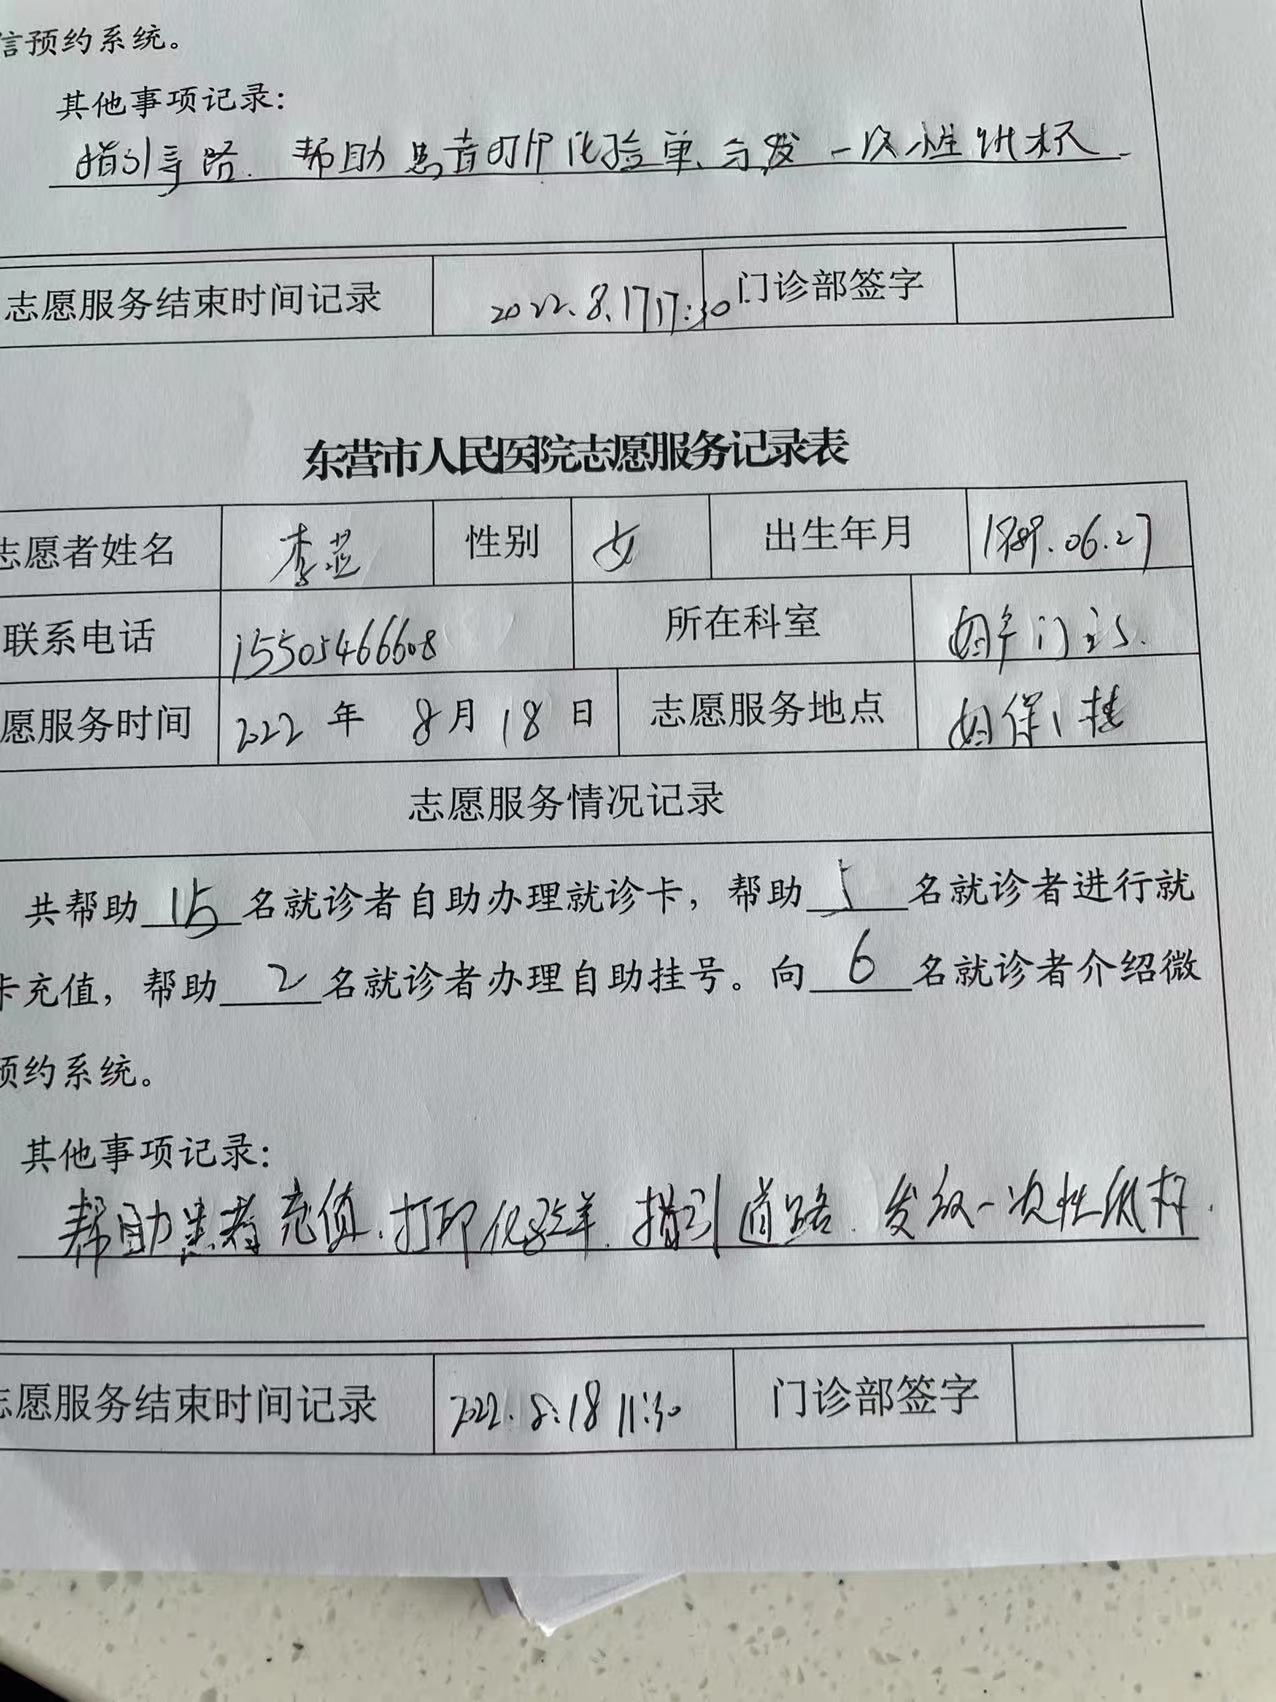 信预约系统。
其他事项记录：
指引导路. 帮助患者打印化验单、分发一次性纸杯.
志愿服务结束时间记录 2022.8.17 17:30 门诊部签字
东营市人民医院志愿服务记录表
志愿者姓名 李 性别 女 出生年月 1989.06.27
联系电话 15505466608 所在科室 妇产门诊.
愿服务时间 2022 年 8月 18 日 志愿服务地点 妇保1楼
志愿服务情况记录
共帮助 15 名就诊者自助办理就诊卡，帮助 5 名就诊者进行就
卡充值，帮助 2 名就诊者办理自助挂号。向 6 名就诊者介绍微
预约系统。
其他事项记录：
帮助患者充值.打印化验单. 指引道路. 发放一次性纸杯.
志愿服务结束时间记录 2022.8.18 11:30 门诊部签字